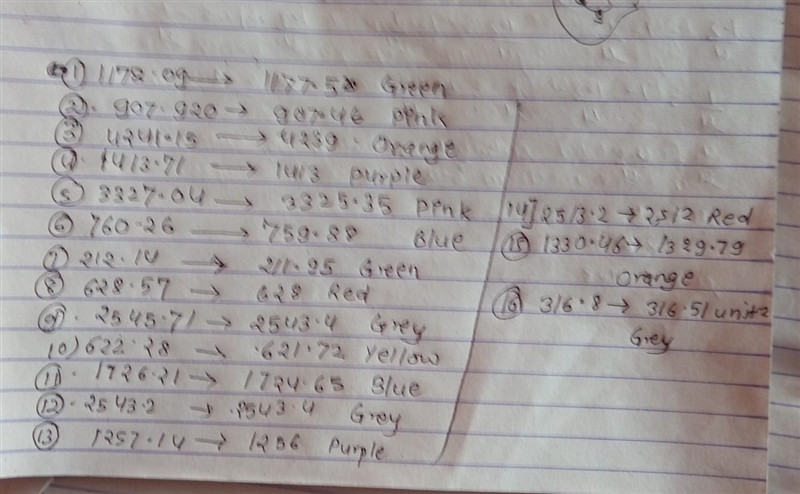 1) 1178.09 → 1177.5 Green
2. 907.920 → 907.46 Pink
3 4241.15 → 4239. Orange
4. 1413.71 → 1413 purple
5 3327.04 → 3325.35 Pink
6 760.26 → 759.88 Blue
7 212.14 → 211.95 Green
8 628.57 → 628 Red
9. 2545.71 → 2543.4 Grey
10) 622.28 → .621.72 Yellow
11. 1726.21 → 1724.65 Blue
12. 2543.2 → 2543.4 Grey
13 1257.14 → 1256 Purple
14] 2513.2 → 2512 Red
15 1330.46 → 1329.79
Orange
16 316.8 → 316.51 units
Grey